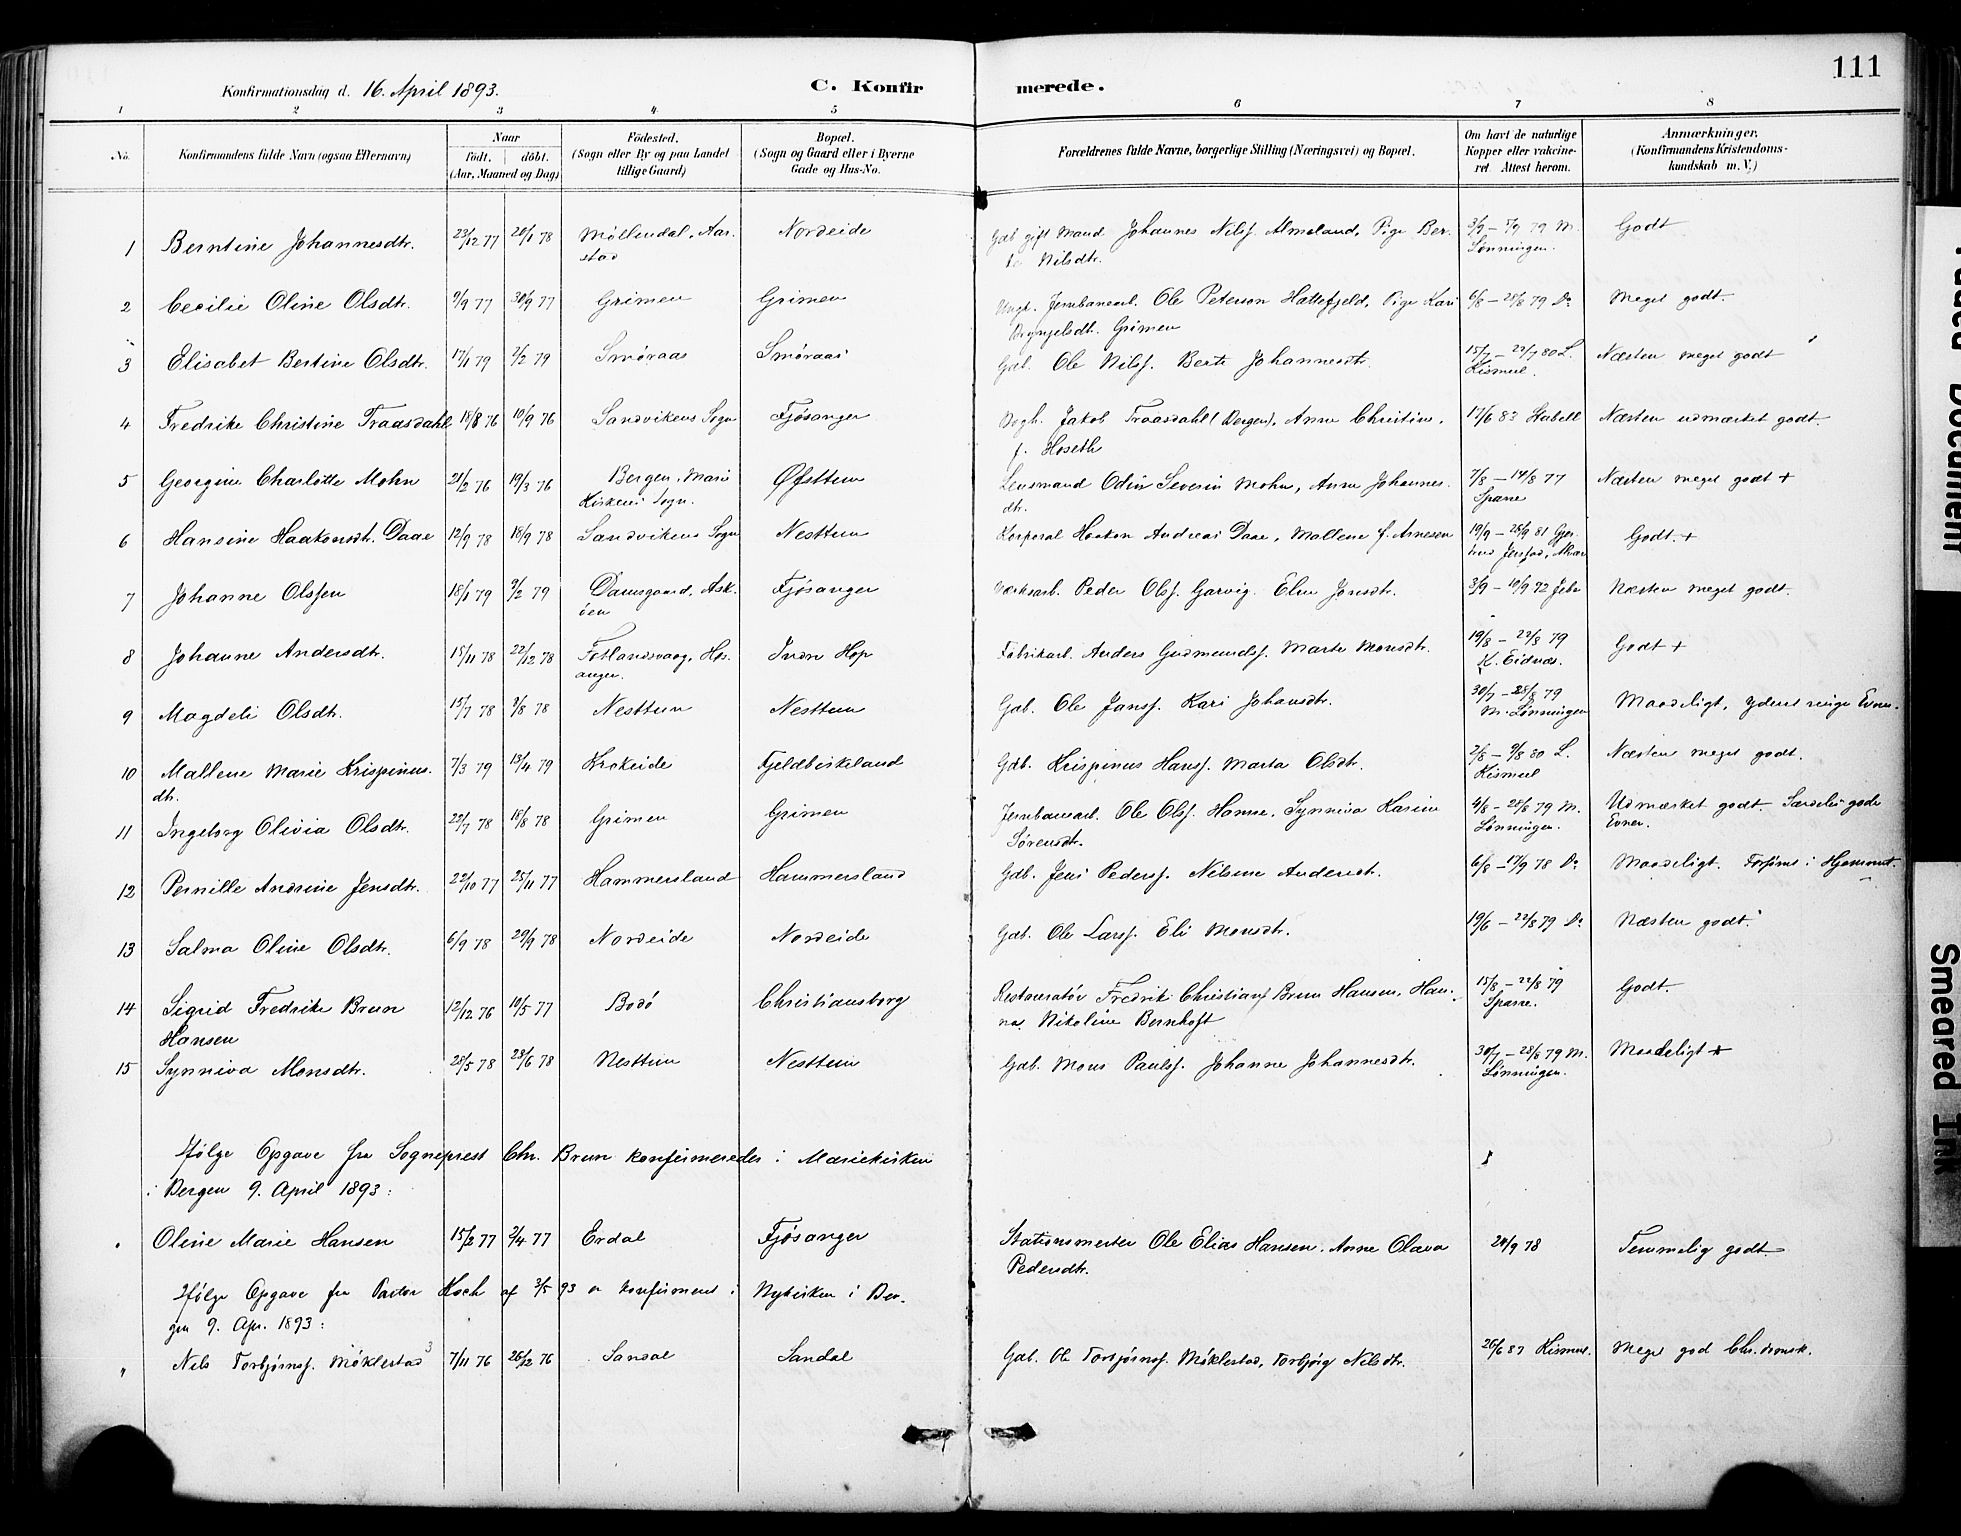 111
Konfirmationsdag d. 16. April 1893.
C. Konfirmerede.
1 2 3 4 5 6 7 8
No.
Konfirmandens fulde Navn (ogsaa Efternavn)
Naar
födt. | döbt.
(Aar, Maaned og Dag)
Födested.
(Sogn eller By og paa Landet
tillige Gaard)
Bopæl.
(Sogn og Gaard eller i Byerne
Gade og Hus-No.
Forældrenes fulde Navne, borgerlige Stilling (Næringsvei) og Bopæl.
Om havt de naturlige
Kopper eller vakcine-
ret. Attest herom.
Anmærkninger.
(Konfirmandens Kristendoms-
kundskab m. V.)
1 Berntine Johannesdtr. 23/12 77 20/1 78 Möllendal, Aar- Nordeide Gdb gift Mand Johannes Nilsf. Almeland, Pige Ber- 3/9 – 5/9 79 M. Godt
stad te Nilsdtr. Lønningen.
2 Cecilie Oline Olsdtr. 9/9 77 30/9 77 Grimen Grimen Ungk. Jernbanearb. Ole Peterson Hattefjeld, Pige Kari 6/8 – 28/8 79 Do Meget godt.
Brynjelsdtr. Grimen
3 Elisabet Bertine Olsdtr. 17/1 79 2/2 79 Smøraas Smøraas Gdb. Ole Nilsf. Berte Johannesdtr. 15/7 – 22/7 80 L. Næsten meget godt
Kismul.
4 Fredrike Christine Traasdahl 18/8 76 10/9 76 Sandvikens Sogn Fjösanger Bogh. Jakob Traasdahl (Bergen), Anne Christine, 17/6 83 Stabell Næsten udmærket godt.
f. Hoseth
5 Georgine Charlotte Mohn 21/2 76 19/3 76 Bergen, Marie Øfsttun Lensmand Odin Severin Mohn, Anne Johannes- 7/8 – 14/8 77 Næsten meget godt +
Kirkens Sogn. dtr. Sparre
6 Hansine Haakonsdtr. Daae 12/9 78 18/9 78 Sandvikens Sogn Nesttun Korporal Haakon Andreas Daae, Mallene f. Arnesen 19/9 – 26/9 81 Godt. +
7 Johanne Olsen 18/1 79 9/2 79 Damsgaard, Ask- Fjösanger Værksarb. Peder Olsf. Garvig. Eline Jonsdtr. 3/9 – 10/9 92 Næsten meget godt.
öen
8 Johanne Andersdtr. 15/11 78 22/12 78 Fotlandsvaag, Hos- Indre Hop Fabrikarb. Anders Gudmundsf. Marte Monsdtr. 19/8 – 22/8 79 Godt +
anger. K. Eidnes.
9 Magdeli Olsdtr. 15/7 78 9/8 78 Nesttun Nesttun Gdb. Ole Jansf. Kari Johansdtr. 30/7 – 28/8 79 Maadeligt, yderst ringe Evner.
M. Lønningen
10 Mallene Marie Krispinus- 7/3 79 13/4 79 Krokeide Fjeldbirkeland Gdb. Krispinus Hansf. Marta Olsdtr. 2/8 – 9/8 80 L. Næsten meget godt.
dtr. Kismul
11 Ingeborg Olivia Olsdtr. 22/7 78 18/8 78 Grimen Grimen Jernbanearb. Ole Olsf. Hamre, Synneva Karine 4/8 – 28/8 79 M. Udmærket godt. Særdeles gode
Sørensdtr. Lønningen. Evner.
12 Pernille Andrine Jensdtr. 22/10 77 25/11 77 Hammersland Hammersland Gdb. Jens Pedersf. Nilsine Andersdtr. 6/8 – 17/9 78 Do Maadeligt. Forsömt i Hjemmet.
13 Salma Oline Olsdtr. 6/9 78 29/9 78 Nordeide Nordeide Gdb. Ole Larsf. Eli Monsdtr. 19/6 – 22/8 79 Do Næsten godt.
14 Sigrid Fredrike Brun 12/12 76 10/5 77 Bodö Christiansborg Restauratör Fredrik Christian Brun Hansen, Han- 15/8 – 22/8 79 Godt.
Hansen na Nikoline Bernhoft Sparre.
15 Synneva Monsdtr. 28/5 78 23/6 78 Nesttun Nesttun Gdb. Mons Paulsf. Johanne Johannesdtr. 30/7 – 28/8 79 M. Maadeligt +
Lønningen.
Ifölge Opgave fra Sogneprest Chr. Brun konfirmeredes i Mariekirken
i Bergen 9. April 1893:
Oline Marie Hansen 15/2 77 2/4 77 Erdal Fjösanger Stationsmester Ole Elias Hansen, Anne Olava 24/9 78 Temmelig godt
Pedersdtr.
Ifölge Opgave fra Pastor Koch af 3/5 93 er konfirmeret i Nykirken i Ber-
gen 9. Apr. 1893:
" Nils Torbjörnsf. Möklestad 7/11 76 26/12 76 Sandal Sandal Gdb. Ole Torbjörnsf. Möklestad, Torbjörg Nilsdtr. 26/6 87 Kismul. Meget god Chr.domsk.
Faded Document
Smeared Ink